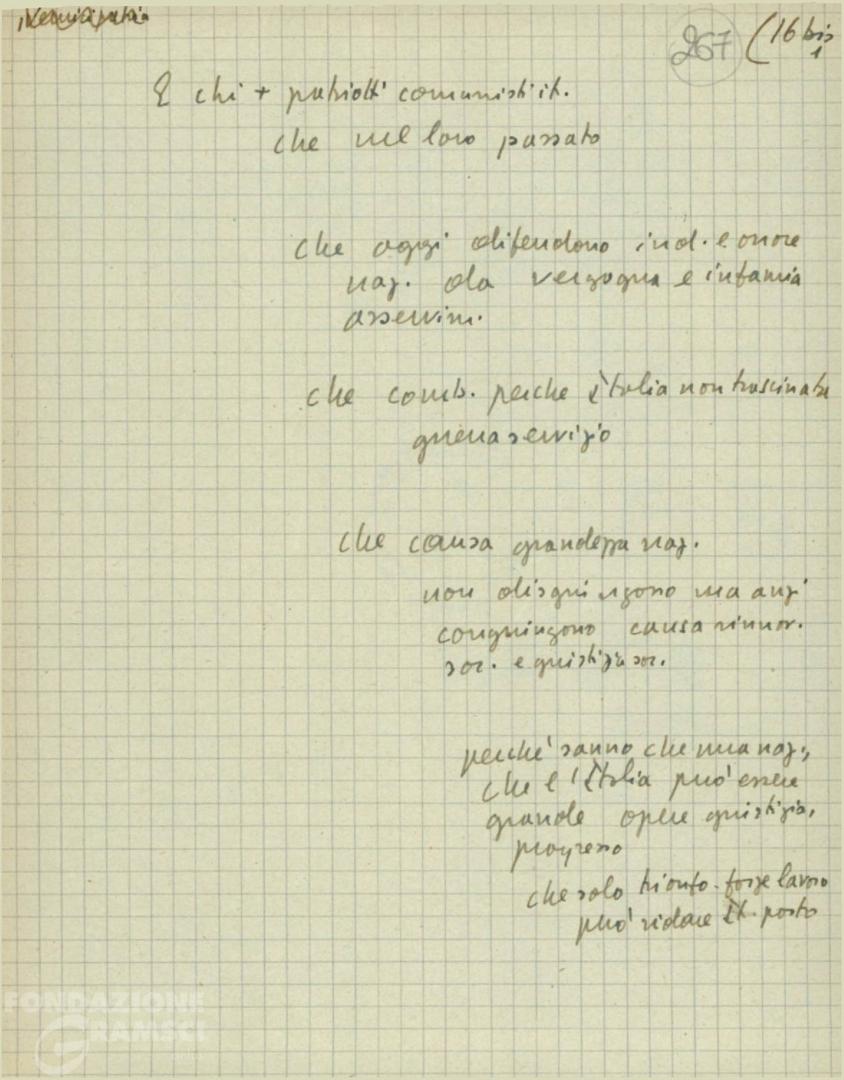 267 (16 bis
1
E chi + patriotti comunisti it.
che nel loro passato
che oggi difendono ind. e onore
naz. da vergogna e infamia
asservim.
che comb. perche Italia non trascinata
guerra servizio
che causa grandezza naz.
non disgiungono ma anzi
congiungono causa rinnov.
soc. e giustizia soc.
perché sanno che una naz.,
che l'Italia può essere
grande opere giustizia,
progresso
che solo trionfo forze lavoro
può ridare It. posto
FONDAZIONE
GRAMSCI